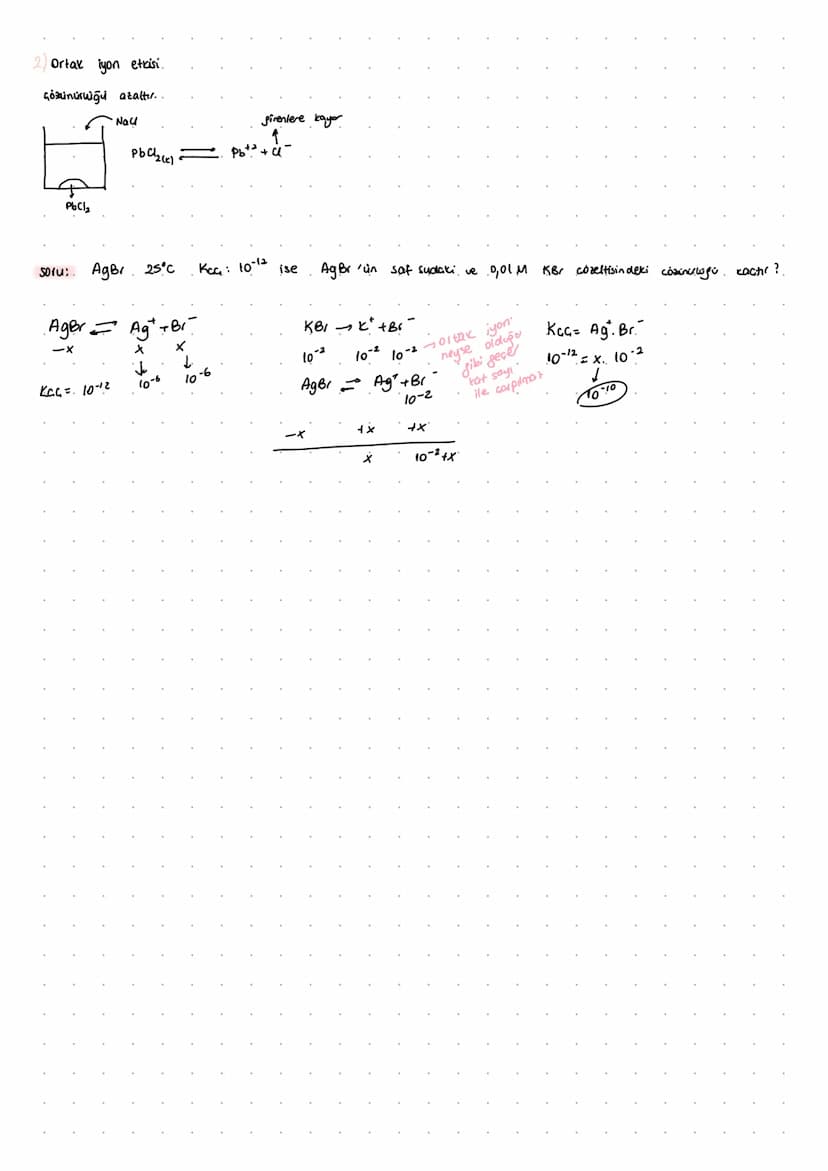 2) Ortak iyon etkisi.
çözünürlüğü azaltır.
NaCl
girenlere kayar
PbCl2(k) ⇌ Pb+2 + Cl-
PbCl2
soru: AgBr 25°C Kçç: 10-12 ise AgBr'ün saf sudaki ve 0,01 M KBr çözeltisindeki çözünürlüğü kaçtır?
AgBr ⇌ Ag+ + Br-
-x x x
10-6 10-6
Kçç = 10-12
KBr → K+ + Br-
10-2 10-2 10-2
→ ortak iyon
neyse olduğu
gibi geçer
kat sayı
ile çarpılmaz
AgBr ⇌ Ag+ + Br-
10-2
-x +x +x
x 10-2+x
Kçç = Ag+.Br-
10-12 = x. 10-2
10-10